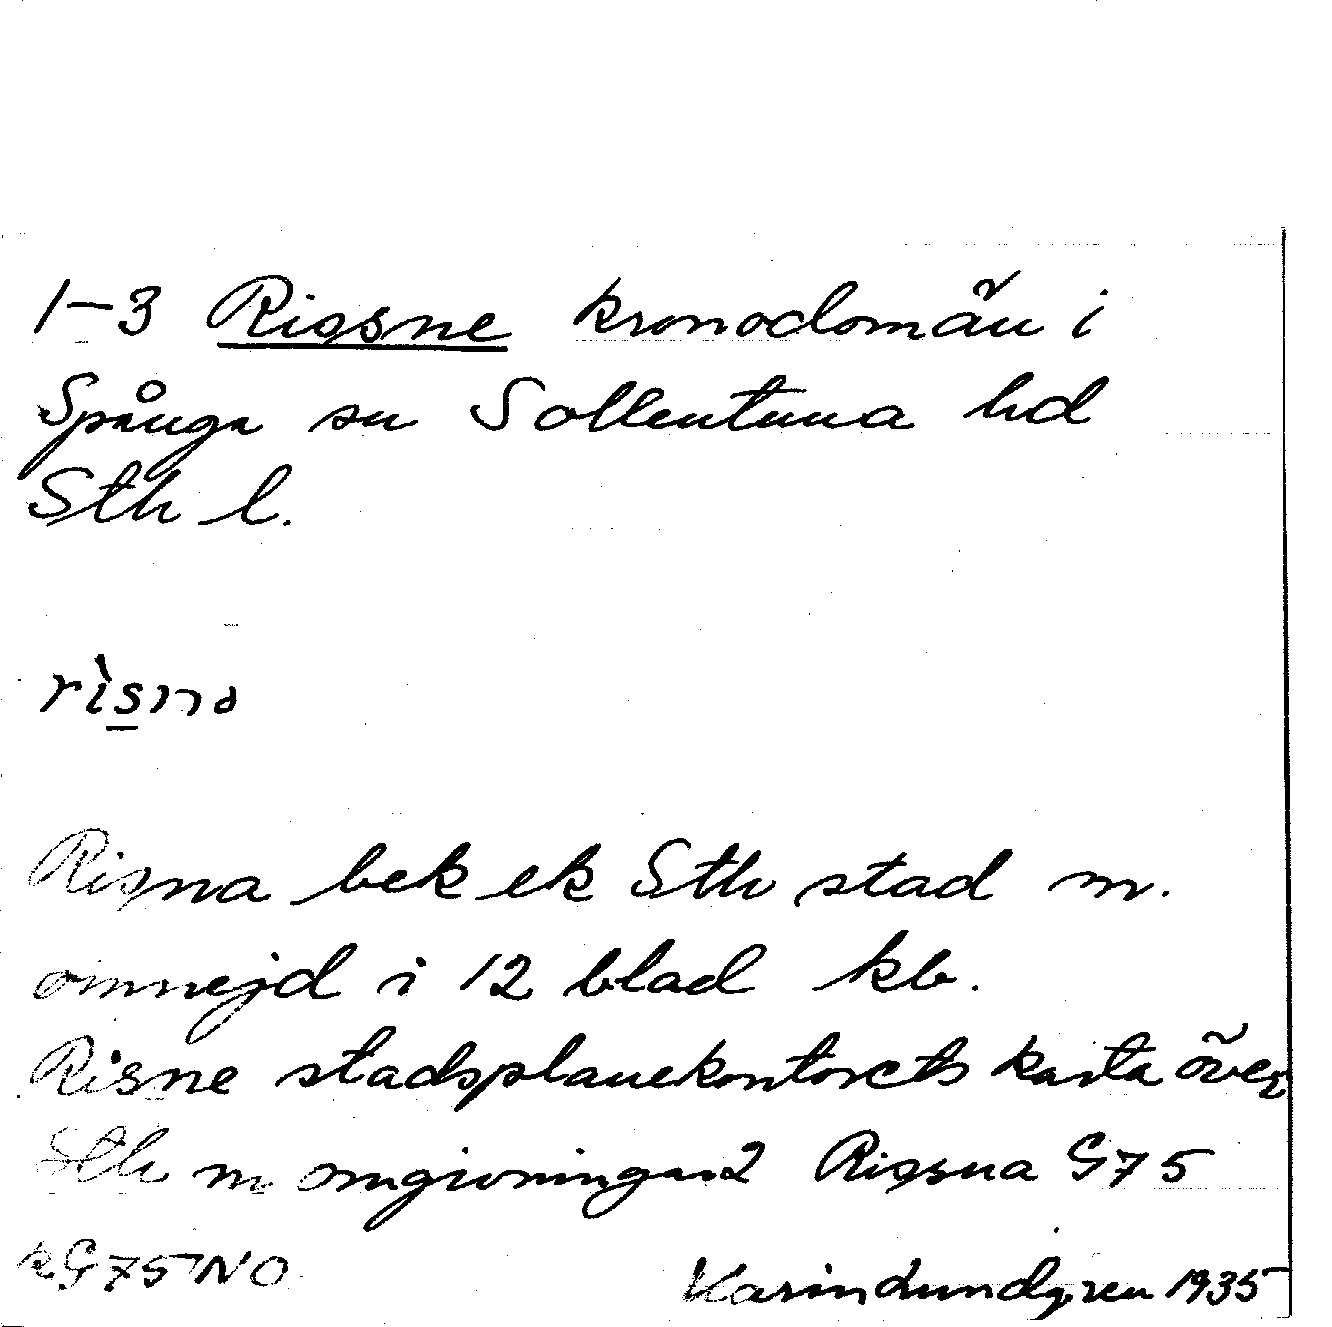 1-3 Rissne kronodomän i
Spånga sn Sollentuna hd
Sth l.
rìsnə
Risna bek ek Sth stad m.
omnejd i 12 blad kb.
Risne stadsplanekontorets karta över
Sth m omgivningar2 Rissna G75
k G75 NO
Karin Lundgren 1935